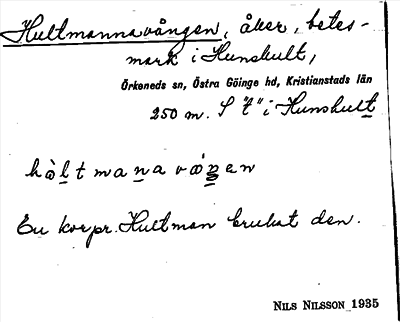 Hultmannavången, åker, betes-
mark i Hunshult,
Örkeneds sn, Östra Göinge hd, Kristianstads län
250 m. S "t" i Hunshult
hòltmanavǻŋen
En korpr. Hultman brukat den.
NILS NILSSON 1935